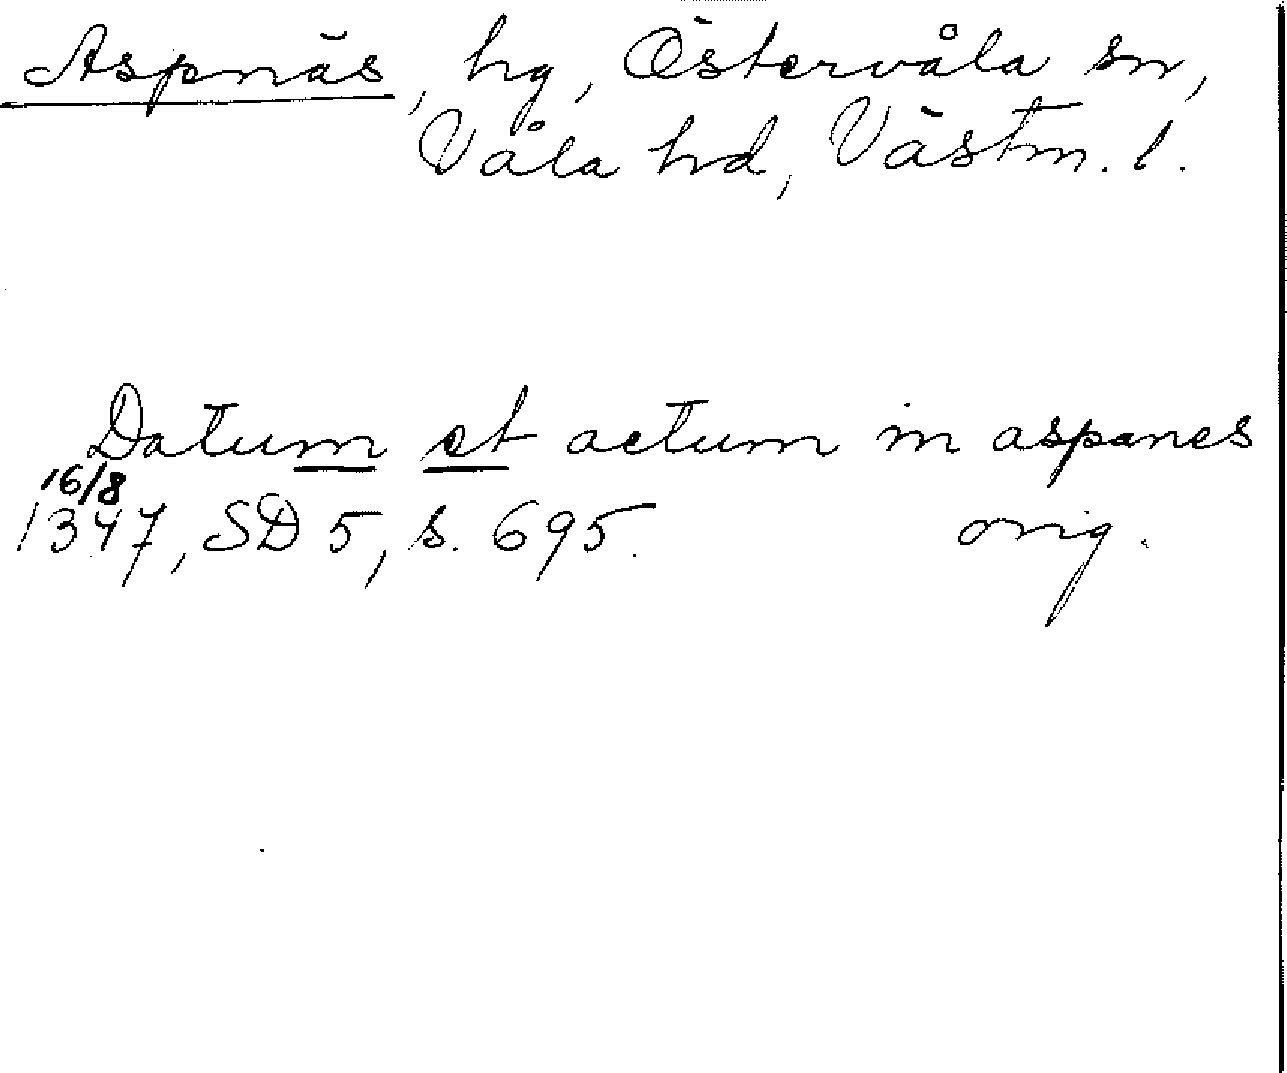 Aspnäs, hg, Östervåla sn,
Våla hd, Västm. l.
Datum et actum in aspanes
16/8
1347, SD 5, s. 695. orig.